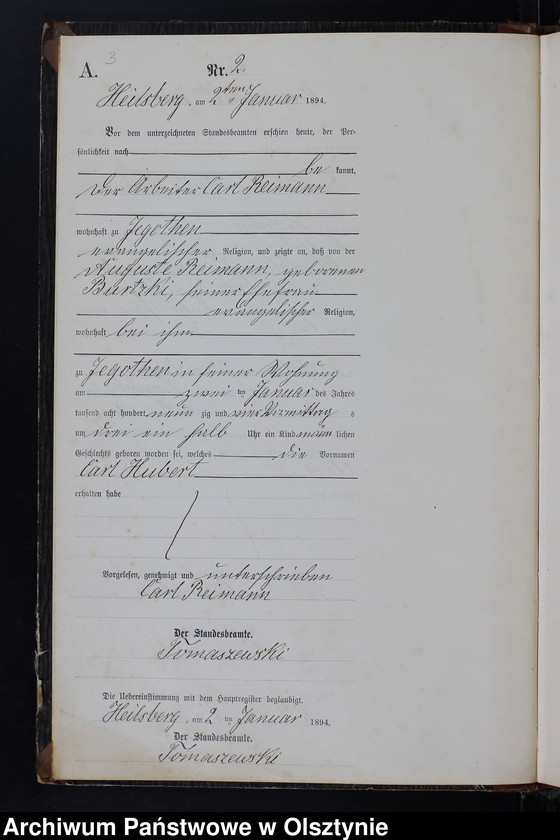 3
A. Nr. 2.
Heilsberg, am 2ten Januar 1894.
Vor dem unterzeichneten Standesbeamten erschien heute, der Per-
sönlichkeit nach
be kannt,
der Arbeiter Carl Reimann
wohnhaft zu Jegothen
evangelischer Religion, und zeigte an, daß von der
Auguste Reimann, geborenen
Burtzki, seiner Ehefrau
evangelischer Religion,
wohnhaft bei ihm
zu Jegothen in seiner Wohnung
am zwei ten Januar des Jahres
tausend acht hundert neun zig und vier Vormittag s
um drei ein halb Uhr ein Kind männ lichen
Geschlechts geboren worden sei, welches die Vornamen
Carl Hubert
erhalten habe
Vorgelesen, genehmigt und unterschrieben
Carl Reimann
Der Standesbeamte.
Tomaszewski
Die Uebereinstimmung mit dem Hauptregister beglaubigt.
Heilsberg, am 2 ten Januar 1894.
Der Standesbeamte.
Tomaszewski
Archiwum Państwowe w Olsztynie